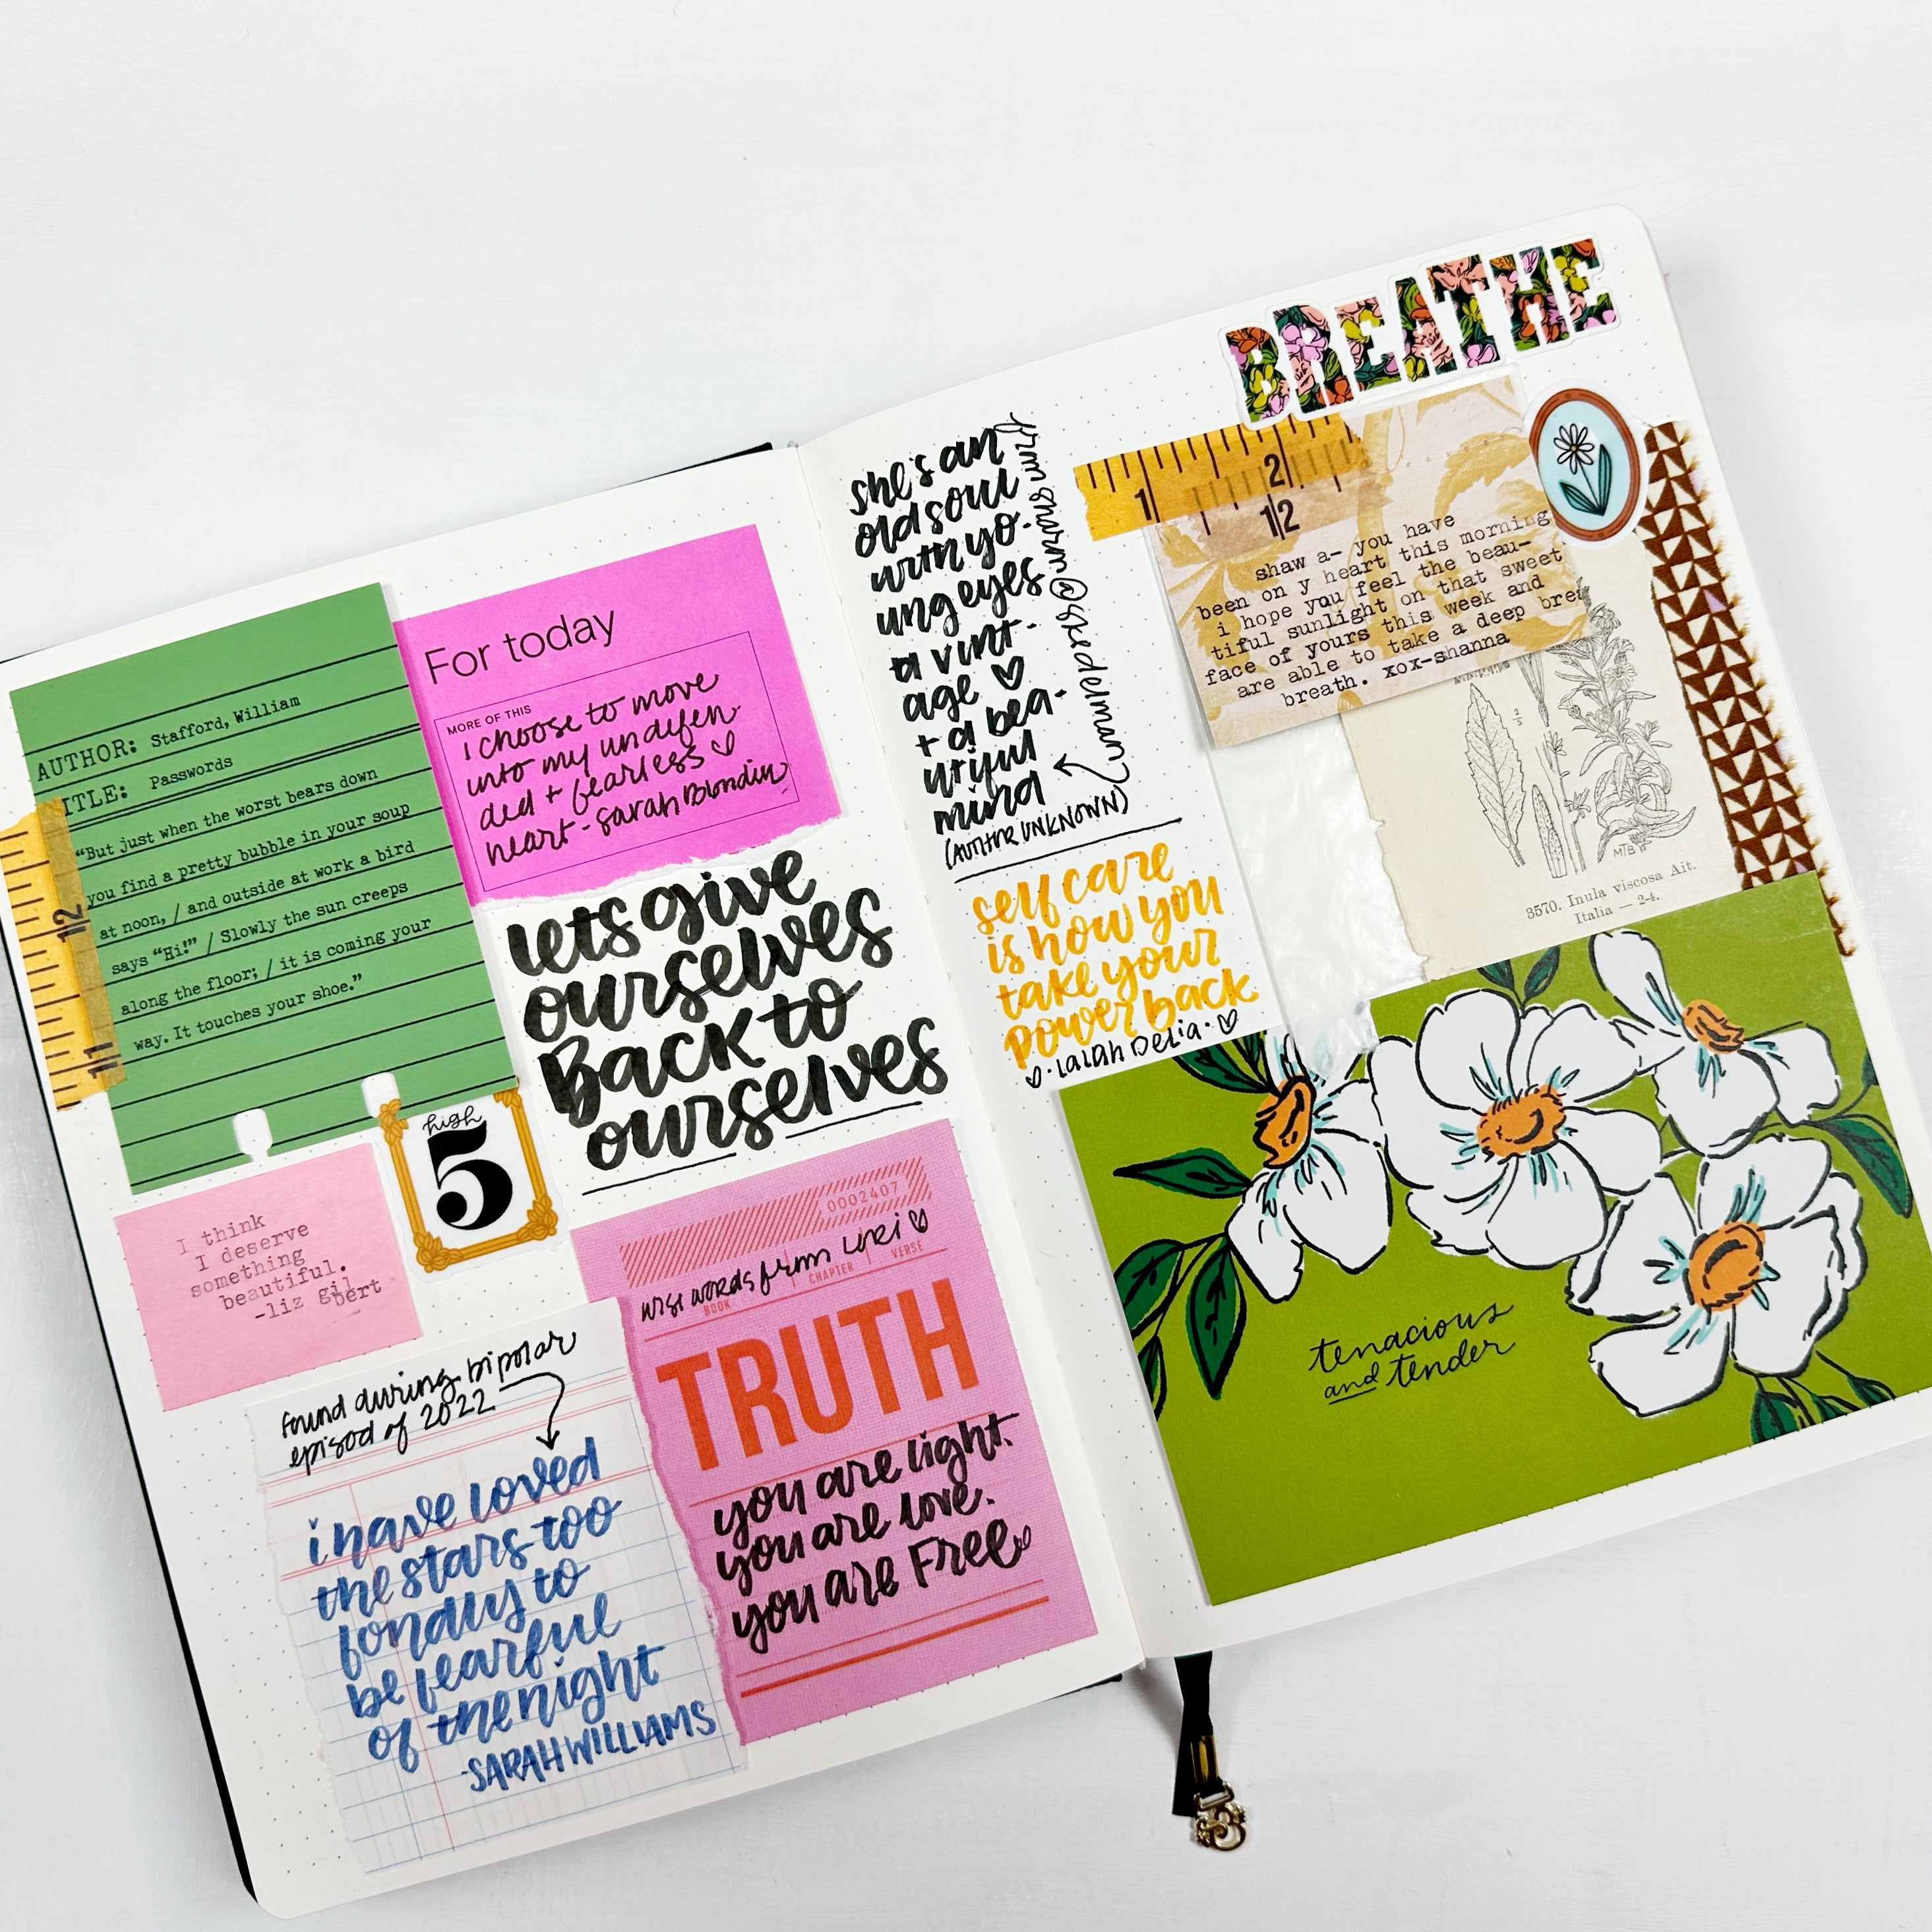 AUTHOR: Stafford, William
TITLE: Passwords
"But just when the worst bears down
you find a pretty bubble in your soup
at noon, / and outside at work a bird
says "Hi!" / Slowly the sun creeps
along the floor; / it is coming your
way. It touches your shoe."
12
11
For today
MORE OF THIS
i choose to move
into my undefen-
ded + fearless
heart - sarah Blondin
lets give
ourselves
Back to
ourselves
high
5
I think
I deserve
something
beautiful.
-liz gilbert
found during bipolar
episod of 2022
i have loved
the stars too
fondly to
be fearful
of the night
-SARAH WILLIAMS
0002407
wise words from Lori
BOOK CHAPTER VERSE
TRUTH
you are light.
you are love.
you are Free
she's an
old soul
with yo-
ung eyes
a vint-
age
+ a bea-
utiful
mind
(AUTHOR UNKNOWN)
self care
is how you
take your
power back
· Lalah Delia ·
BREATHE
1 2
12
shaw a- you have
been on y heart this morning
i hope you feel the beau-
tiful sunlight on that sweet
face of yours this week and
are able to take a deep brea
breath. xox-shanna
2/5
MTB
3570. Inula viscosa Ait.
Italia — 2-4.
tenacious
and tender